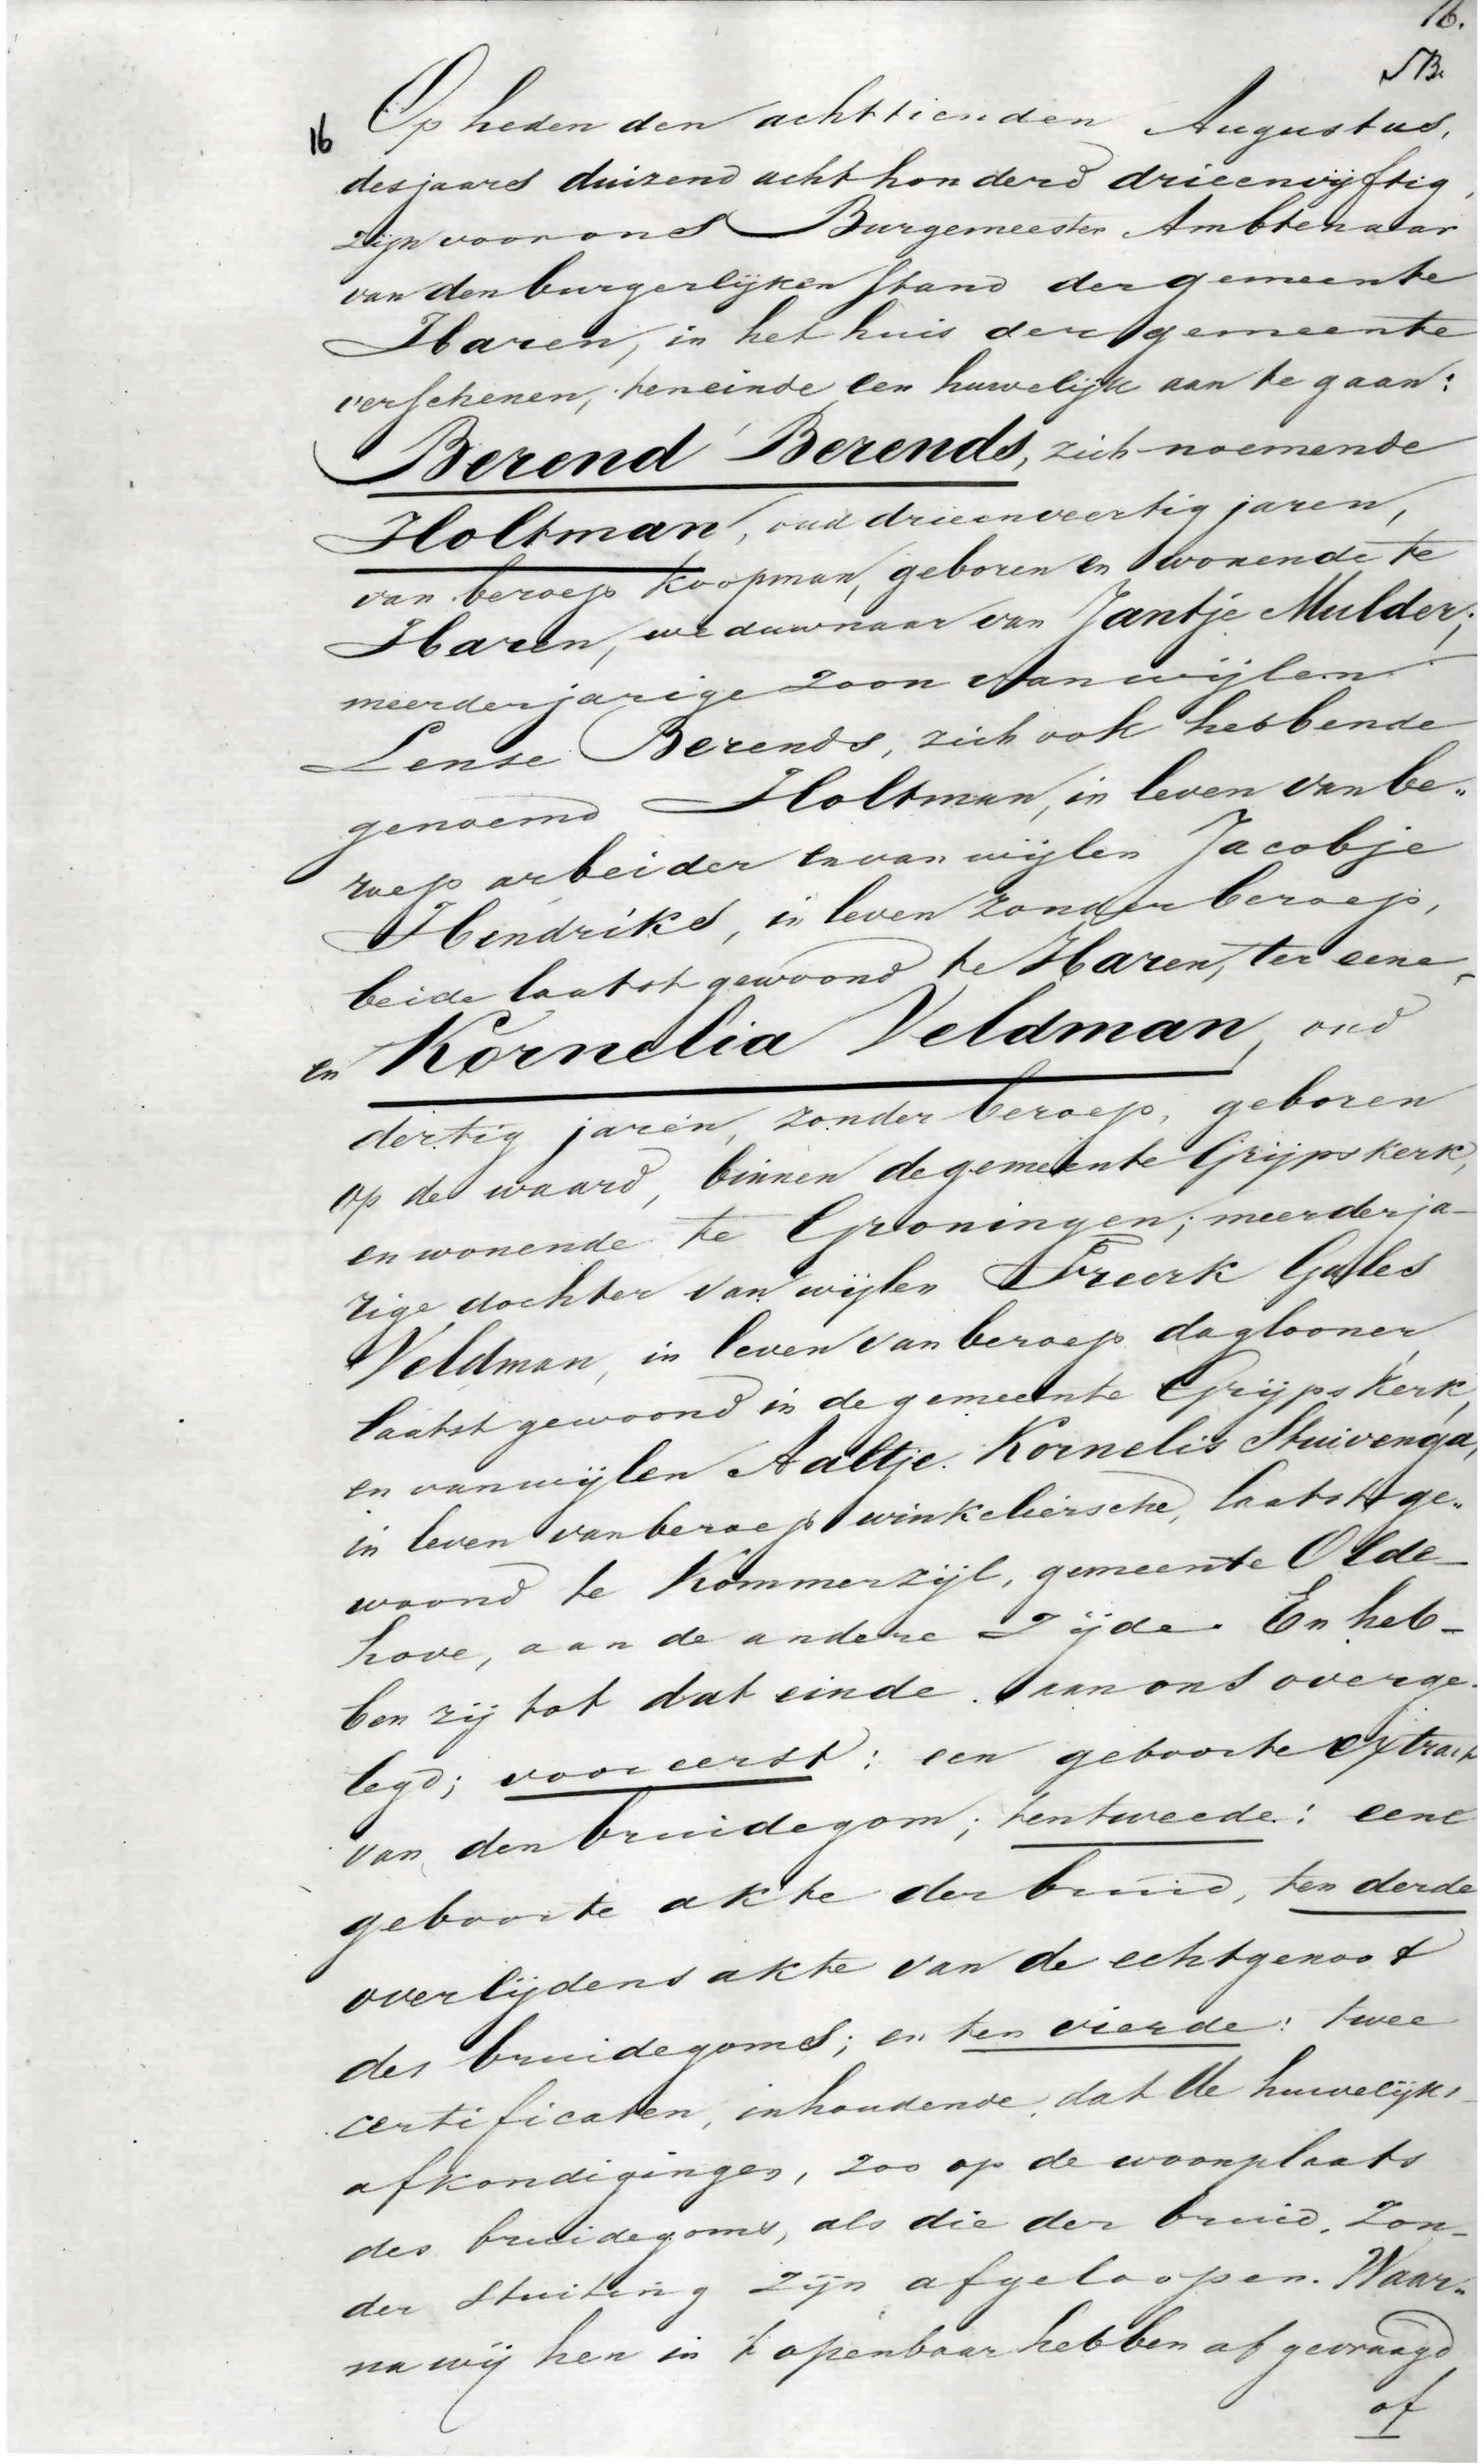 16.
JB.
16 Op heden den achttienden Augustus,
des jaars duizend acht honderd drieenvijftig,
zijn voor ons Burgemeester Ambtenaar
van den burgerlijken stand der gemeente
Haren, in het huis der gemeente
verschenen, ten einde een huwelijk aan te gaan:
Berend Berends, zich noemende
Holtman, oud drieenveertig jaren,
van beroep koopman, geboren en wonende te
Haren, weduwnaar van Jantje Mulder;
meerderjarige zoon van wijlen
Lense Berends, zich ook hebbende
genoemd Holtman, in leven van be„
roep arbeider en van wijlen Jacobje
Hendriks, in leven zonder beroep,
beide laatst gewoond te Haren, ter eene
en Kornelia Veldman, oud
dertig jaren, zonder beroep, geboren
op de waard, binnen de gemeente Grijpskerk,
en wonende te Groningen; meerderja-
rige dochter van wijlen Freerk Gales
Veldman, in leven van beroep daglooner,
laatst gewoond in de gemeente Grijpskerk,
en van wijlen Aaltje Kornelis Stuivenga,
in leven van beroep winkeliersche, laatst ge„
woond te Kommerzijl, gemeente Olde-
hove, aan de andere zijde. En heb-
ben zij tot dat einde aan ons overge-
legd; voor eerst: een geboorte extract
van den bruidegom; ten tweede: eene
geboorte akte der bruid, ten derde
overlijdens akte van de echtgenoot
des bruidegoms; en ten vierde: twee
certificaten, inhoudende, dat de huwelijks-
afkondigingen, zoo op de woonplaats
des bruidegoms, als die der bruid, zon-
der stuiting zijn afgeloopen. Waar„
na wij hen in 't openbaar hebben afgevraagd
of